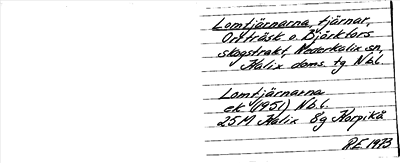 Lomtjärnarna, tjärnar,
Orrträsk o. Björkfors
skogstrakt, Nederkalix sn,
Kalix doms. tg Nb.l.
Lomtjärnarna
ek (1951) Nb.l.
25M Kalix 8g Korpikå
RE 1973